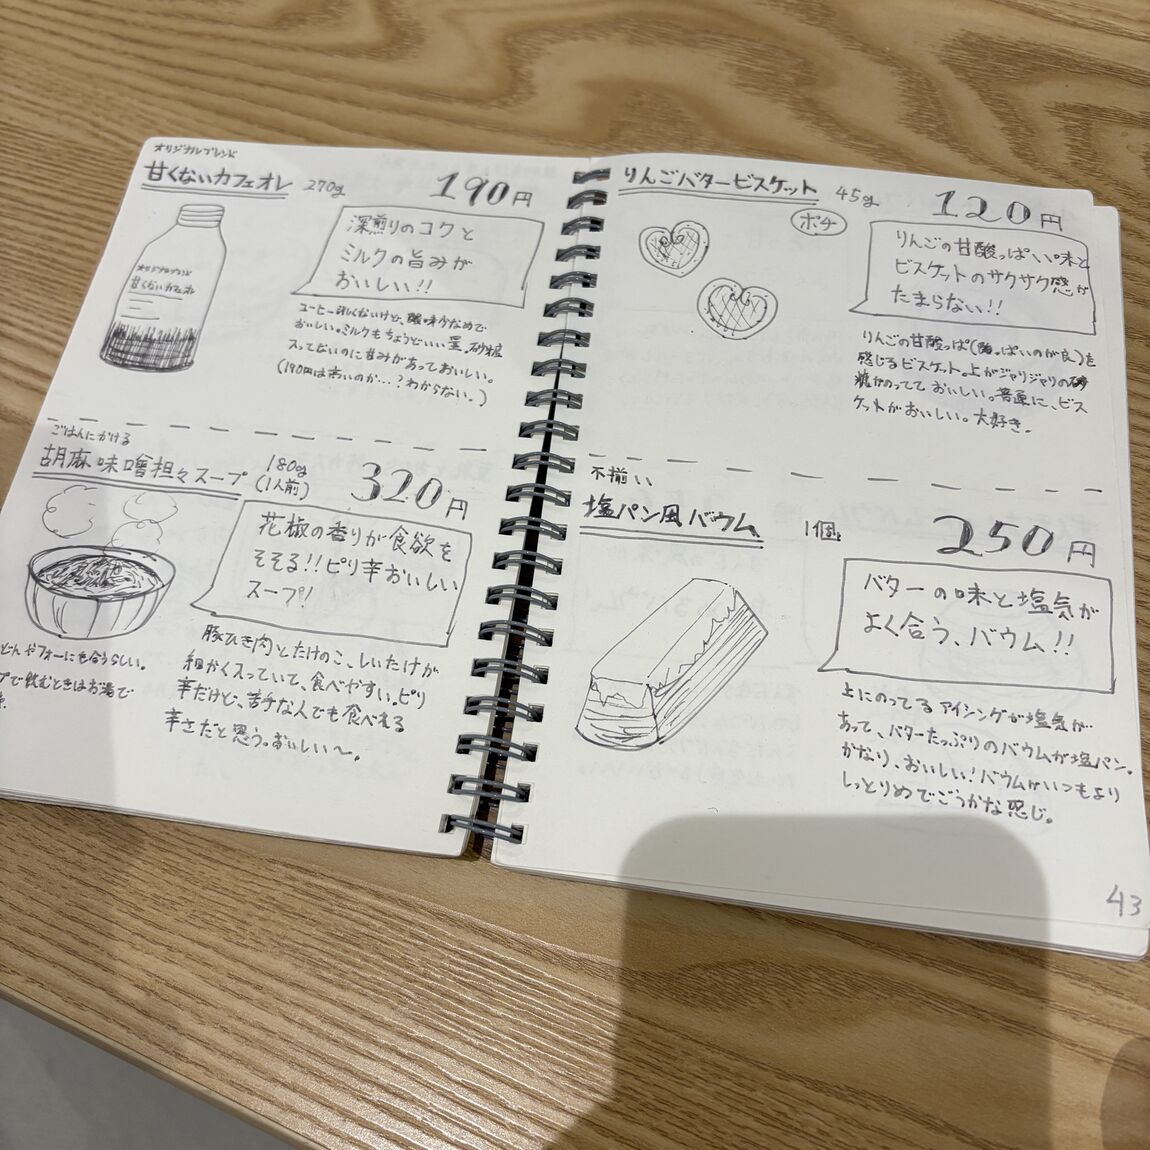 オリジナルブレンド
甘くないカフェオレ 270g 190円
オリジナルブレンド
甘くないカフェオレ
深煎りのコクと
ミルクの旨みが
おいしい!!
コーヒー詳しくないけど、酸味少なめで
おいしい。ミルクもちょうどいい量。砂糖
入ってないのに甘みがあっておいしい。
(190円は高いのか…?わからない。)
ごはんにかける
胡麻味噌担々スープ 180g 320円
(1人前)
花椒の香りが食欲を
そそる!!ピリ辛おいしい
スープ!
豚ひき肉とたけのこ、しいたけが
細かく入っていて、食べやすい。ピリ
辛だけど、苦手な人でも食べれる
辛さだと思う。おいしい〜。
どんやフォーにも合うらしい。
プで飲むときはお湯で
りんごバタービスケット 45g 120円
ポチ
りんごの甘酸っぱい味と
ビスケットのサクサク感が
たまらない!!
りんごの甘酸っぱ(酸っぱいのが良)を
感じるビスケット。上がジャリジャリの砂
糖がのってて おいしい。普通に、ビス
ケットがおいしい。大好き.
不揃い
塩パン風バウム 1個 250円
バターの味と塩気が
よく合う、バウム!!
上にのってるアイシングが塩気が
あって、バターたっぷりのバウムが塩パン。
かなり、おいしい!バウムがいつもより
しっとりめでごうかな感じ。
43